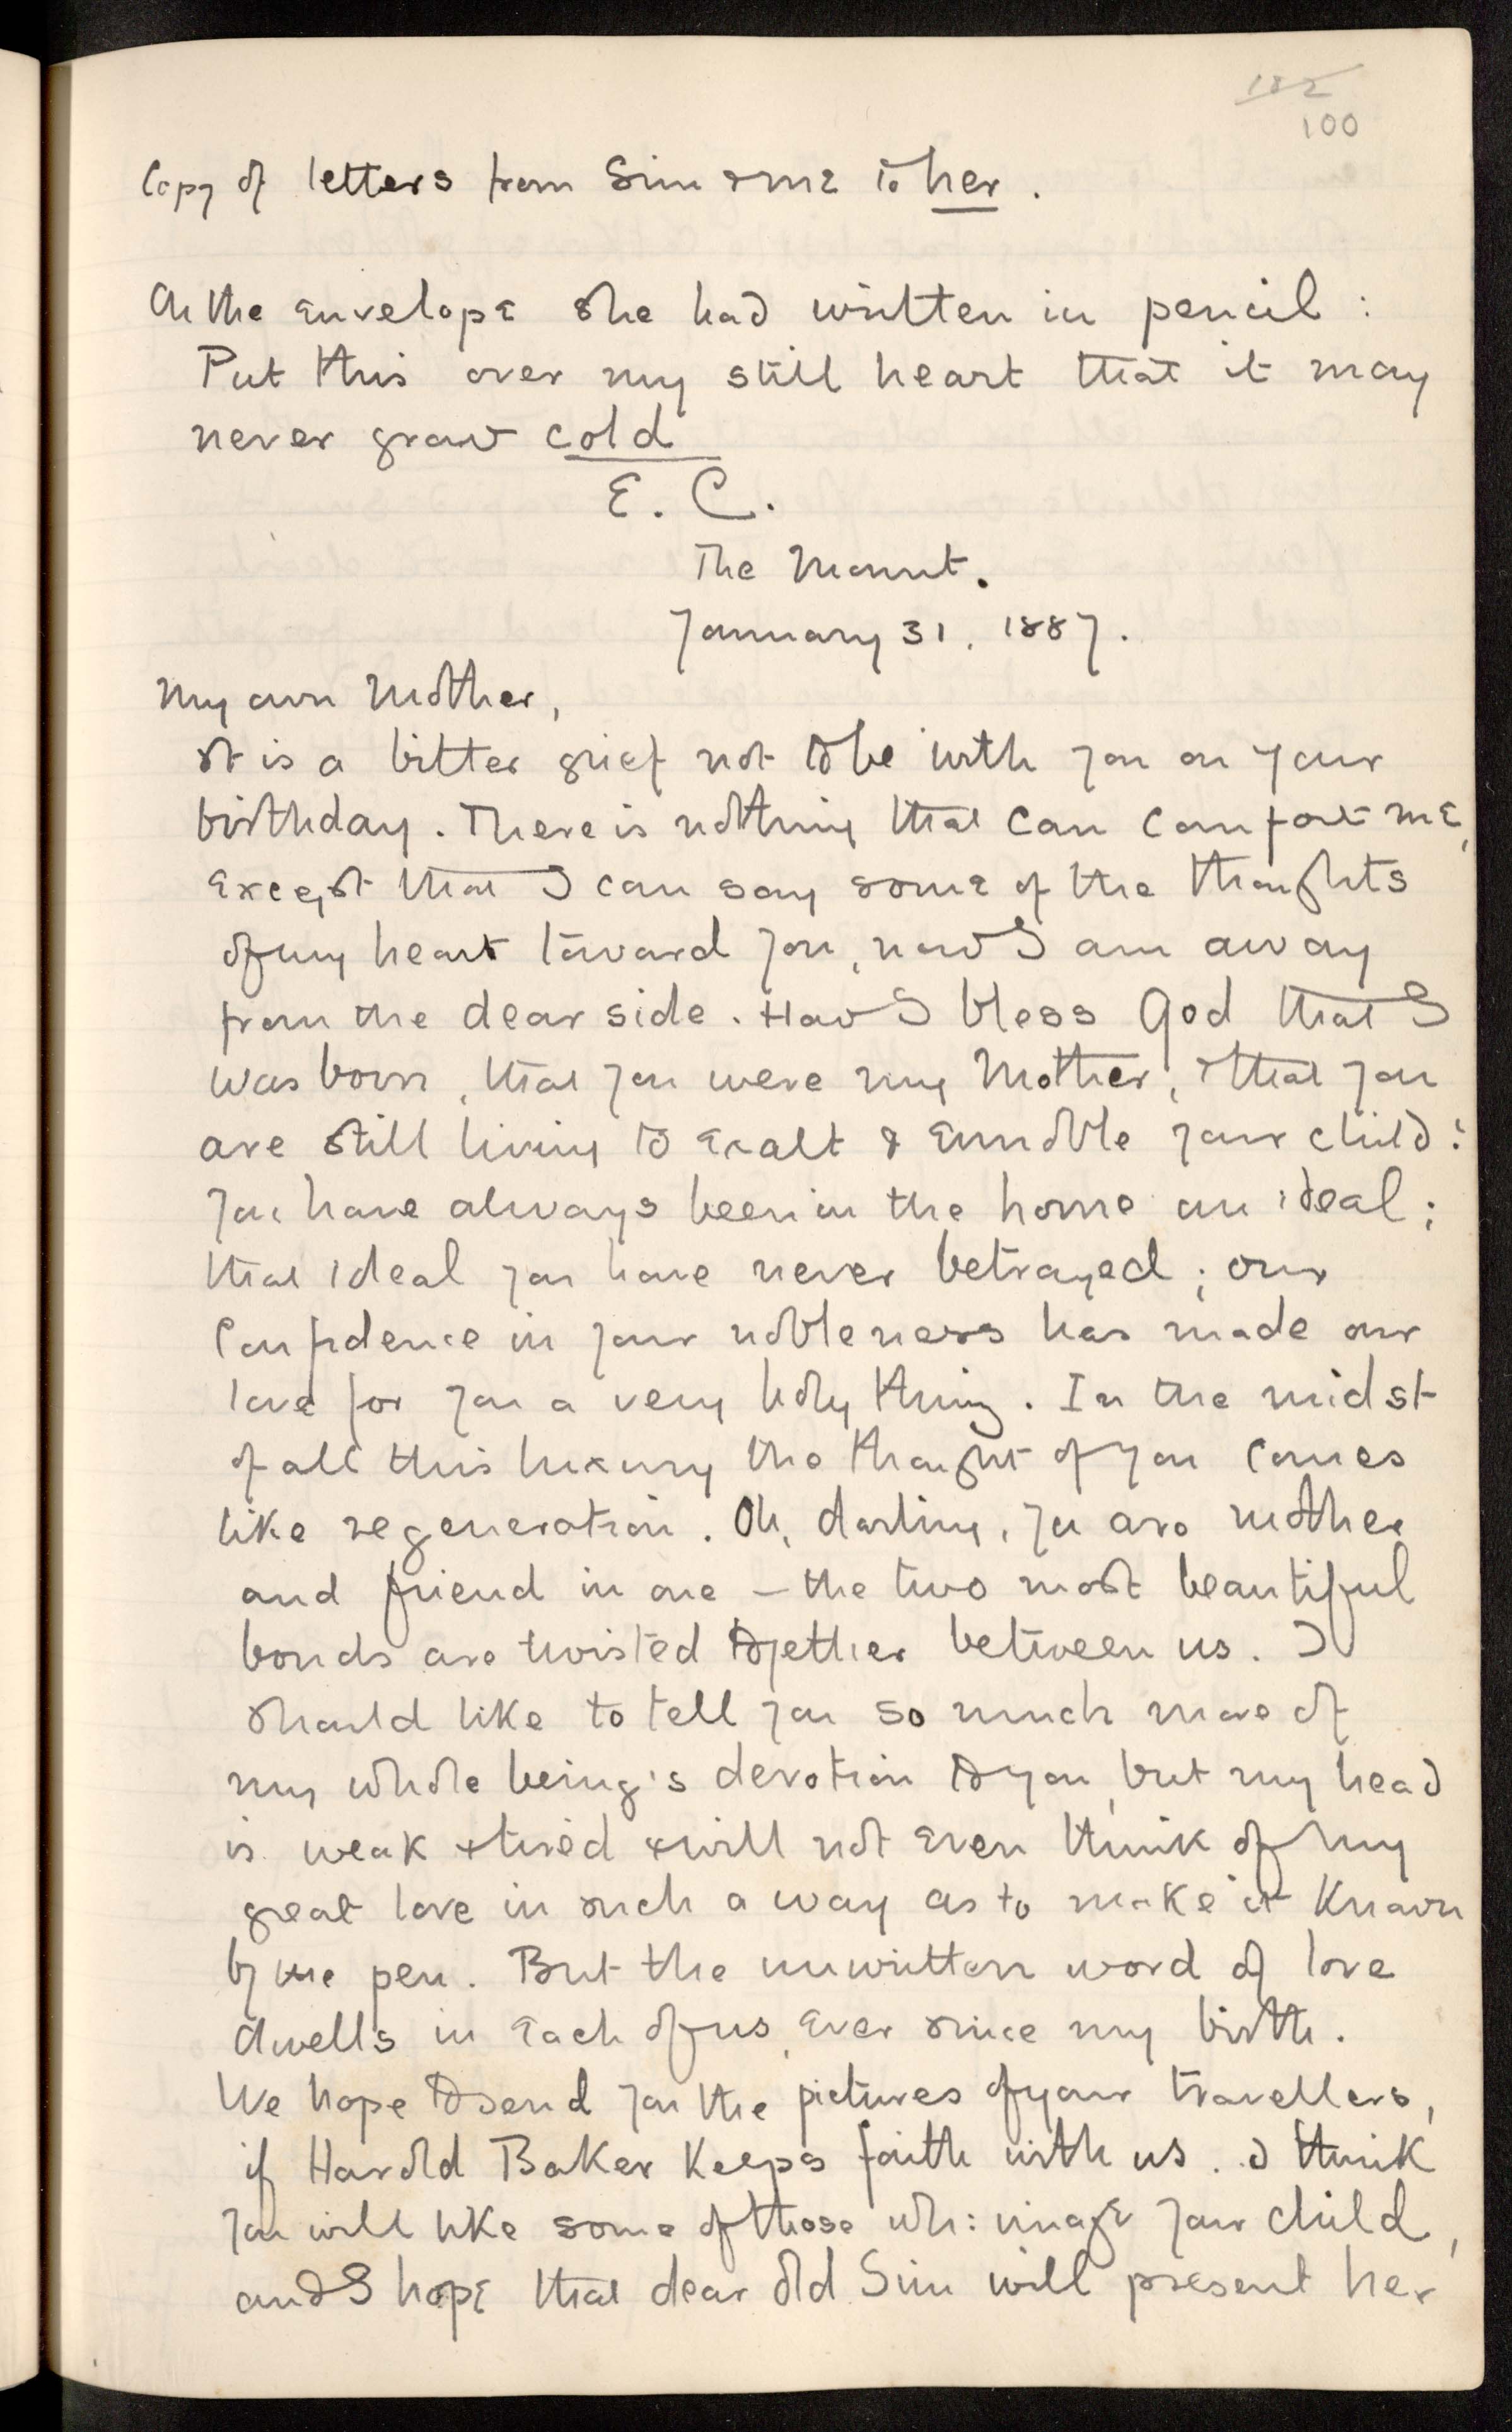 182
100
Copy of letters from Sim & me to her.
On the envelope she had written in pencil:
Put this over my still heart that it may
never grow cold
E. C.
The Mount.
January 31. 1887.
My own Mother,
It is a bitter grief not to be with you on your
birthday. There is nothing that can comfort me,
except that I can say some of the thoughts
of my heart toward you, now I am away
from the dear side. How I bless God that I
was born, that you were my Mother, & that you
are still living to exalt & ennoble your child!
You have always been in the home an ideal;
that ideal you have never betrayed; our
confidence in your nobleness has made our
love for you a very holy thing. In the midst
of all this luxury the thought of you comes
like regeneration. Oh, darling, you are mother
and friend in one – the two most beautiful
bonds are twisted together between us. I
should like to tell you so much more of
my whole being's devotion to you, but my head
is weak & tired & will not even think of my
great love in such a way as to make it known
by the pen. But the unwritten word of love
dwells in each of us, ever since my birth.
We hope to send you the pictures of your travellers,
if Harold Baker keeps faith with us. I think
you will like some of those wh: image your child,
and I hope that dear old Sim will present her